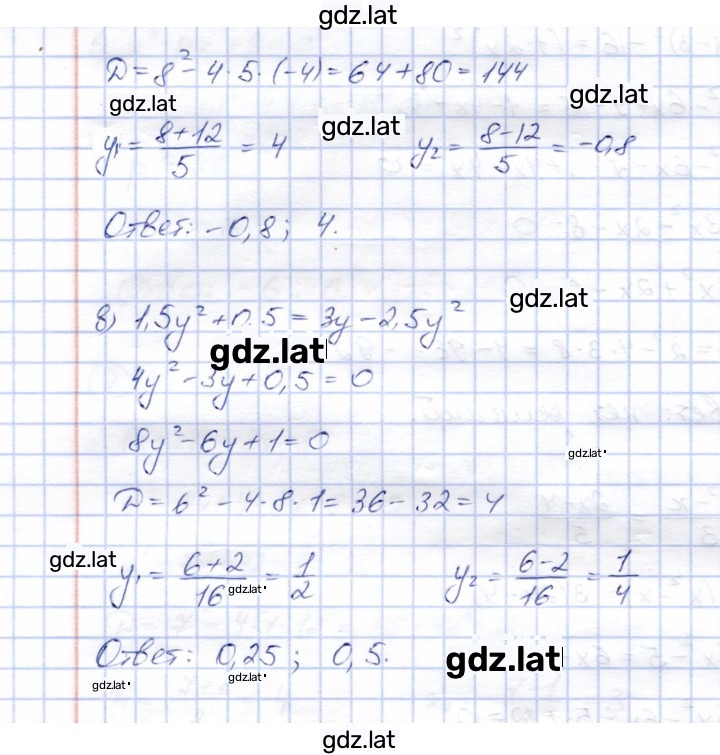 gdz.lat
D = 8² - 4·5·(-4) = 64 + 80 = 144
gdz.lat gdz.lat
gdz.lat
y₁ = (8+12)/5 = 4 y₂ = (8-12)/5 = -0,8
Ответ: -0,8; 4.
gdz.lat
8) 1,5y² + 0,5 = 3y - 2,5y²
gdz.lat
4y² - 3y + 0,5 = 0
8y² - 6y + 1 = 0
gdz.lat
D = 6² - 4·8·1 = 36 - 32 = 4
gdz.lat
y₁ = (6+2)/16 = 1/2 y₂ = (6-2)/16 = 1/4
gdz.lat
Ответ: 0,25; 0,5.
gdz.lat
gdz.lat gdz.lat
gdz.lat